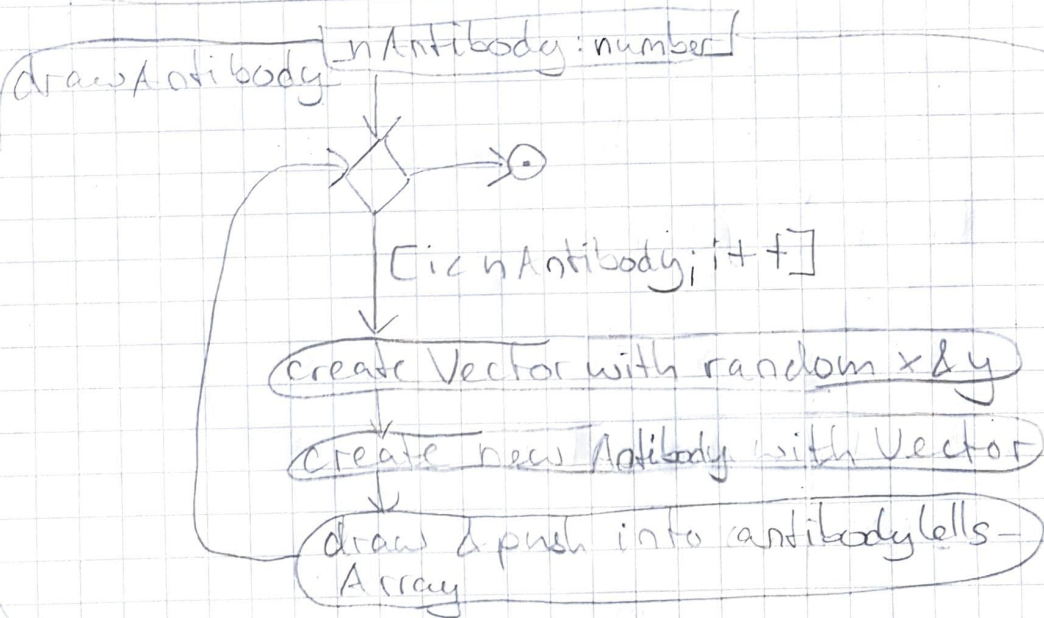 nAntibody: number
drawAntibody
[i< nAntibody; i++]
create Vector with random x & y
create new Antibody with Vector
draw & push into antibodyCells-
Array